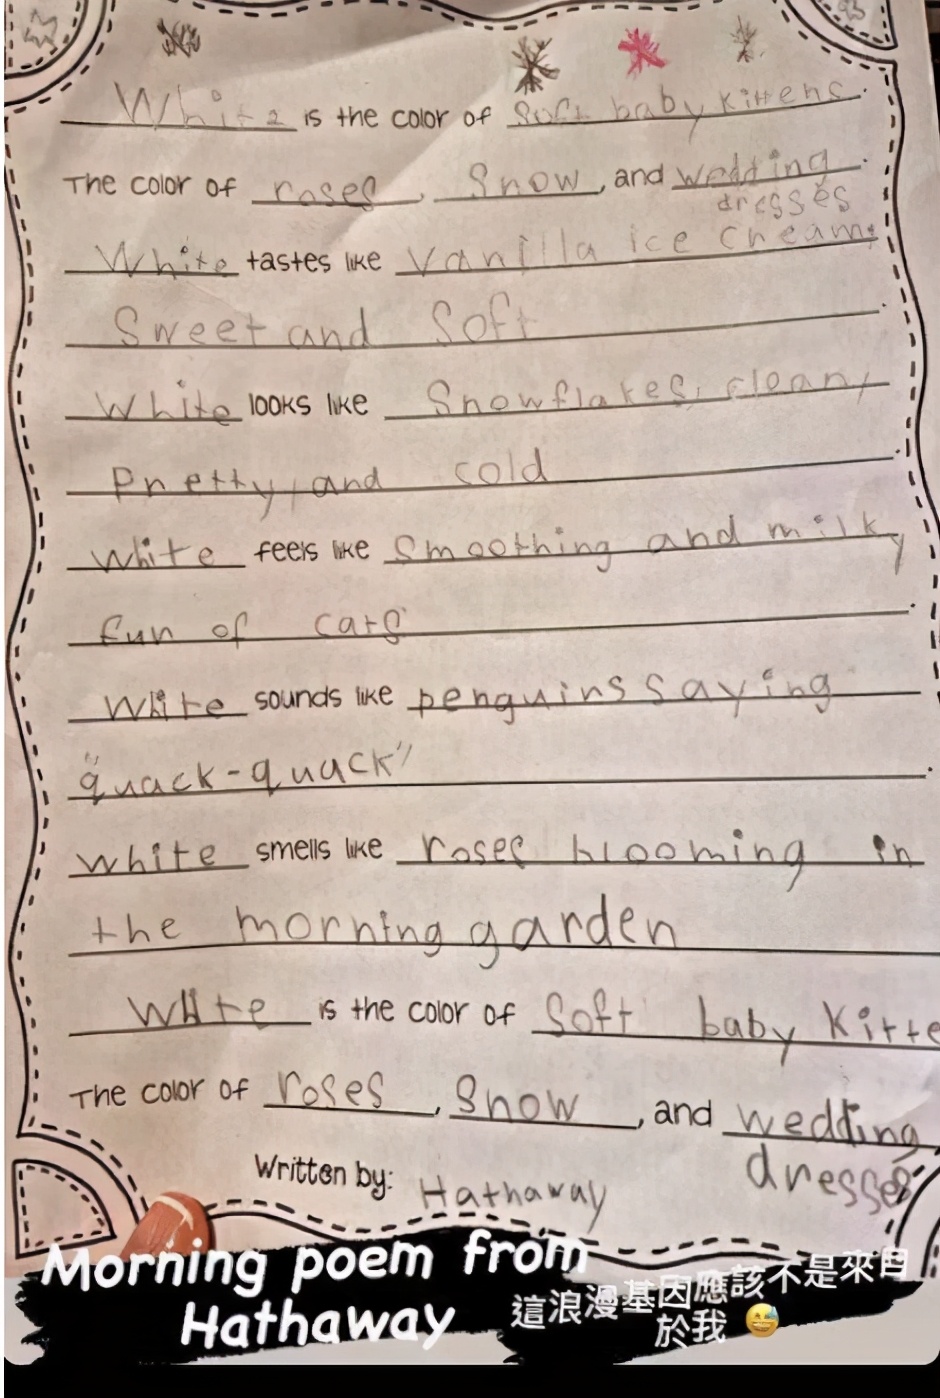 White is the color of soft baby kittens.
The color of roses, snow, and wedding
dresses
White tastes like vanilla ice cream;
Sweet and soft.
White looks like Snowflakes, clean,
Pretty, and cold.
white feels like smoothing and milky
fur of cats.
White sounds like penguins saying
"quack-quack".
white smells like roses blooming in
the morning garden
White is the color of soft baby kitte
The color of roses, Snow, and wedding
dresses
Written by: Hathaway
Morning poem from
Hathaway
這浪漫基因應該不是來自
於我 😅